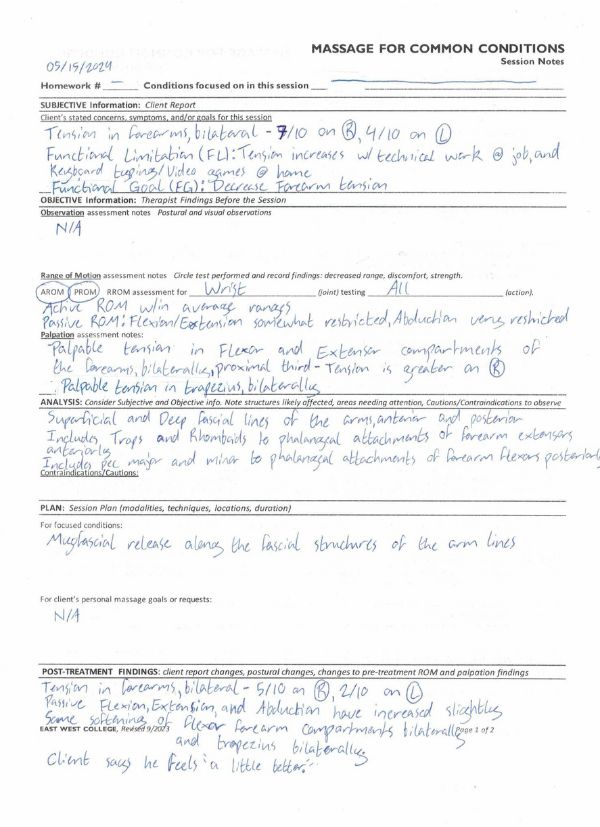 MASSAGE FOR COMMON CONDITIONS
Session Notes
05/15/2024
Homework # Conditions focused on in this session
SUBJECTIVE Information: Client Report
Client's stated concerns, symptoms, and/or goals for this session
Tension in forearms, bilateral - 7/10 on Ⓡ, 4/10 on Ⓛ
Functional Limitation (FL): Tension increases w/ technical work @ job, and
Keyboard typing/Video games @ home
Functional Goal (FG): Decrease Forearm tension
OBJECTIVE Information: Therapist Findings Before the Session
Observation assessment notes Postural and visual observations
N/A
Range of Motion assessment notes Circle test performed and record findings: decreased range, discomfort, strength.
AROM PROM RROM assessment for Wrist (joint) testing All (action).
Active ROM w/in average ranges
Passive ROM: Flexion/Extension somewhat restricted, Abduction very restricted
Palpation assessment notes:
Palpable tension in Flexor and Extensor compartments of
the forearms, bilaterally, proximal third - Tension is greater on Ⓡ
Palpable tension in trapezius, bilaterally
ANALYSIS: Consider Subjective and Objective info. Note structures likely affected, areas needing attention, Cautions/Contraindications to observe
Superficial and Deep fascial lines of the arms, anterior and posterior
Includes Traps and Rhomboids to phalangeal attachments of forearm extensors
anteriorly
Includes pec major and minor to phalangeal attachments of forearm flexors posteriorly
Contraindications/Cautions:
PLAN: Session Plan (modalities, techniques, locations, duration)
For focused conditions:
Myofascial release along the fascial structures of the arm lines
For client's personal massage goals or requests:
N/A
POST-TREATMENT FINDINGS: client report changes, postural changes, changes to pre-treatment ROM and palpation findings
Tension in forearms, bilateral - 5/10 on Ⓡ, 2/10 on Ⓛ
Passive Flexion, Extension, and Abduction have increased slightly
Some softening of flexor forearm compartments bilaterally
EAST WEST COLLEGE, Revised 9/2023 Page 1 of 2
and trapezius bilaterally
Client says he feels "a little better."